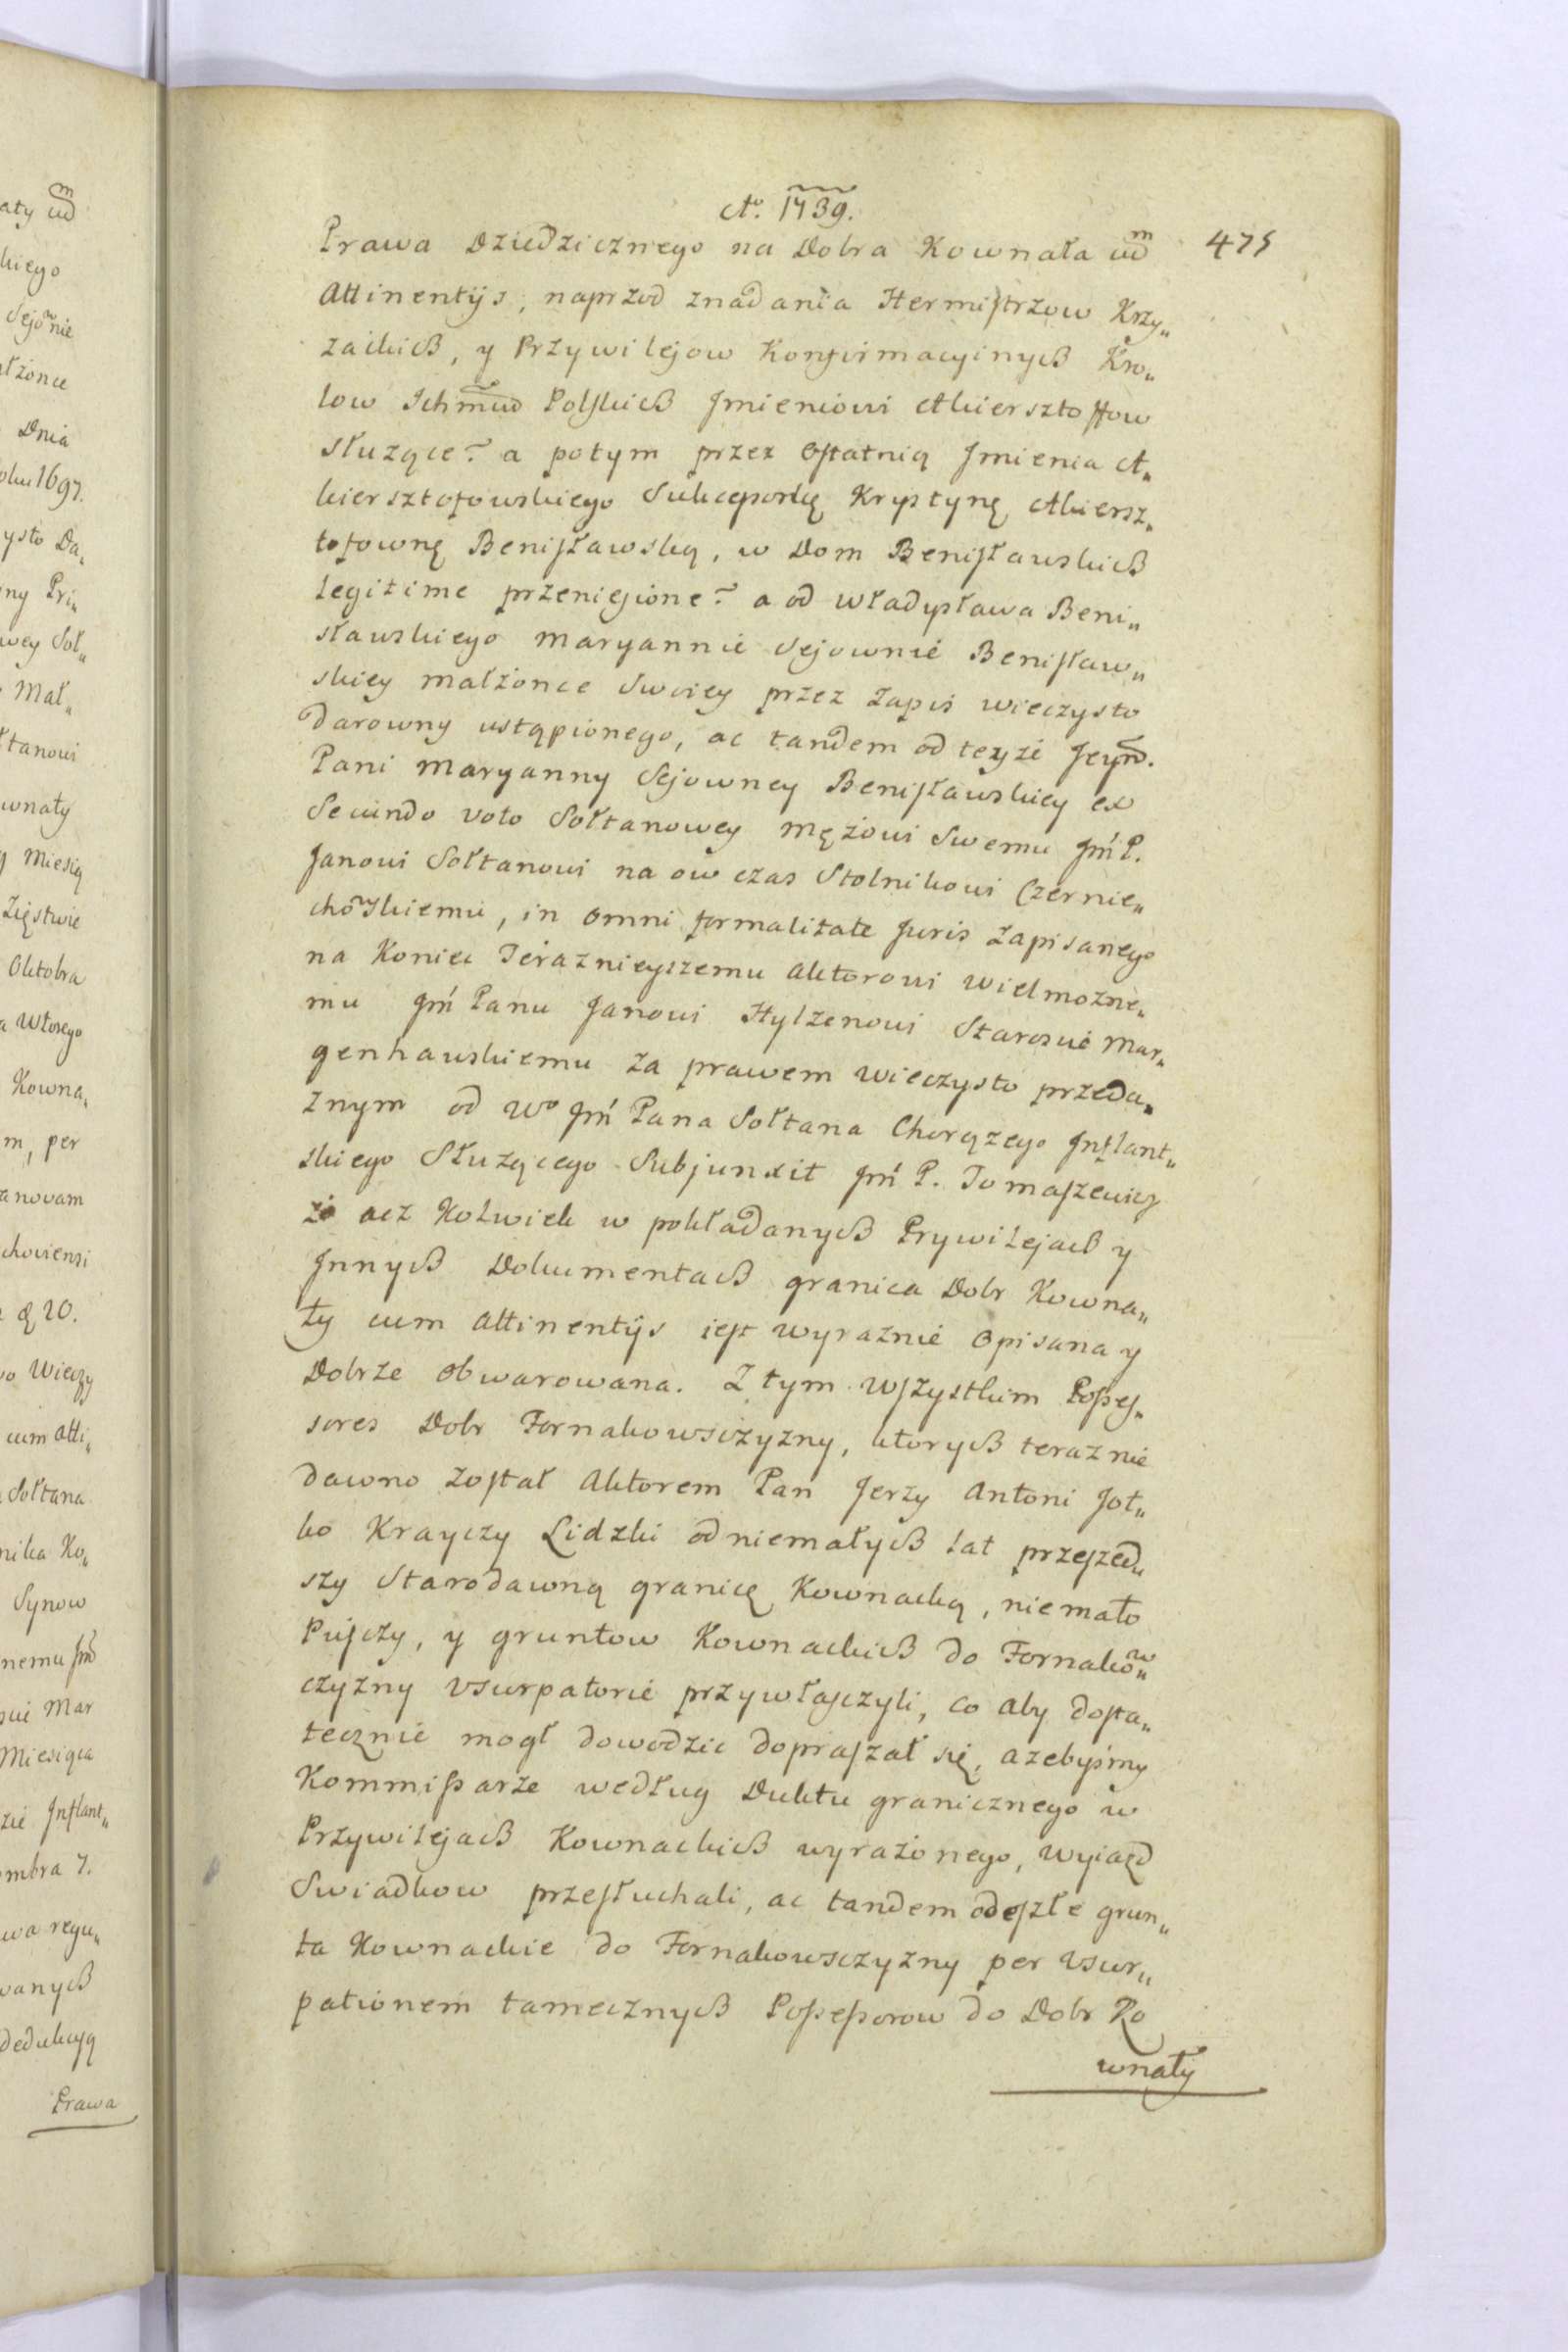 A͠o. 1739.
475
Prawa Dziedzicznego na Dobra Kownała cum
Attinentijs, naprzod znadania Hermistrzow Krzy„
zackich, y Przywilejow Konfirmacyinych Kro„
low Ichmciow Polskich Jmieniowi Akiersztoffow
służące͠. a potym przez ostatnią Jmienia A„
kiersztofowskiego Sukcessorkę Krystynę Akiersz„
tofownę Benisławską, w Dom Benisławskich
legitime przeniesione͠. a od Władysława Beni„
sławskiego Maryannie Sejownie Benisław„
skiey małżonce Swoiey przez Zapis wieczysto
darowny ustąpionego, ac tandem od teyże Jeym.
Pani Maryanny Sejowney Benisławskiey ex
Secundo voto Sołtanowey Mężowi Swemu Jm̃ P.
Janowi Sołtanowi na ow czas Stolnikowi Czernie„
chowskiemu, in omni formalitate Juris Zapisanego
na Koniec Terazniejszemu Aktorowi Wielmożne„
mu Jm̃ Panu Janowi Hylzenowi Staroście Mar„
genhauskiemu za prawem wieczysto przeda„
znym od Wo Jm̃ Pana Sołtana Chorążego Inflant„
skiego Służącego. Subjunxit Jm̃ P. Tomaszewicz
że acz Kolwiek w pokładanych Prywilejach y
Innych Dokumentach granica Dobr Kowna„
ły cum Attinentijs iest wyraznie opisana y
Dobrze obwarowana. Z tym wszystkim Posses„
sores Dobr Fornakowsczyzny, ktorych teraz nie
dawno został Aktorem Pan Jerzy Antoni Jot„
ko Krayczy Lidzki od niemałych lat przeszed„
szy Starodawną granicę Kownacką, niemało
Puszczy, y gruntow Kownackich do Fornakow„
czyzny vsurpatorie przywłaszczyli, co aby dosta„
tecznie mogł dowodzic dopraszał się, azebysmy
Kommissarze według Duktu granicznego w
Przywilejach Kownackich wyrażonego, wyiazd
Swiadkow przesłuchali, ac tandem odeszłe grun„
ta Kownackie do Fornakowsczyzny per vsur„
pationem tamecznych Possessorow do Dobr Ko
wnały